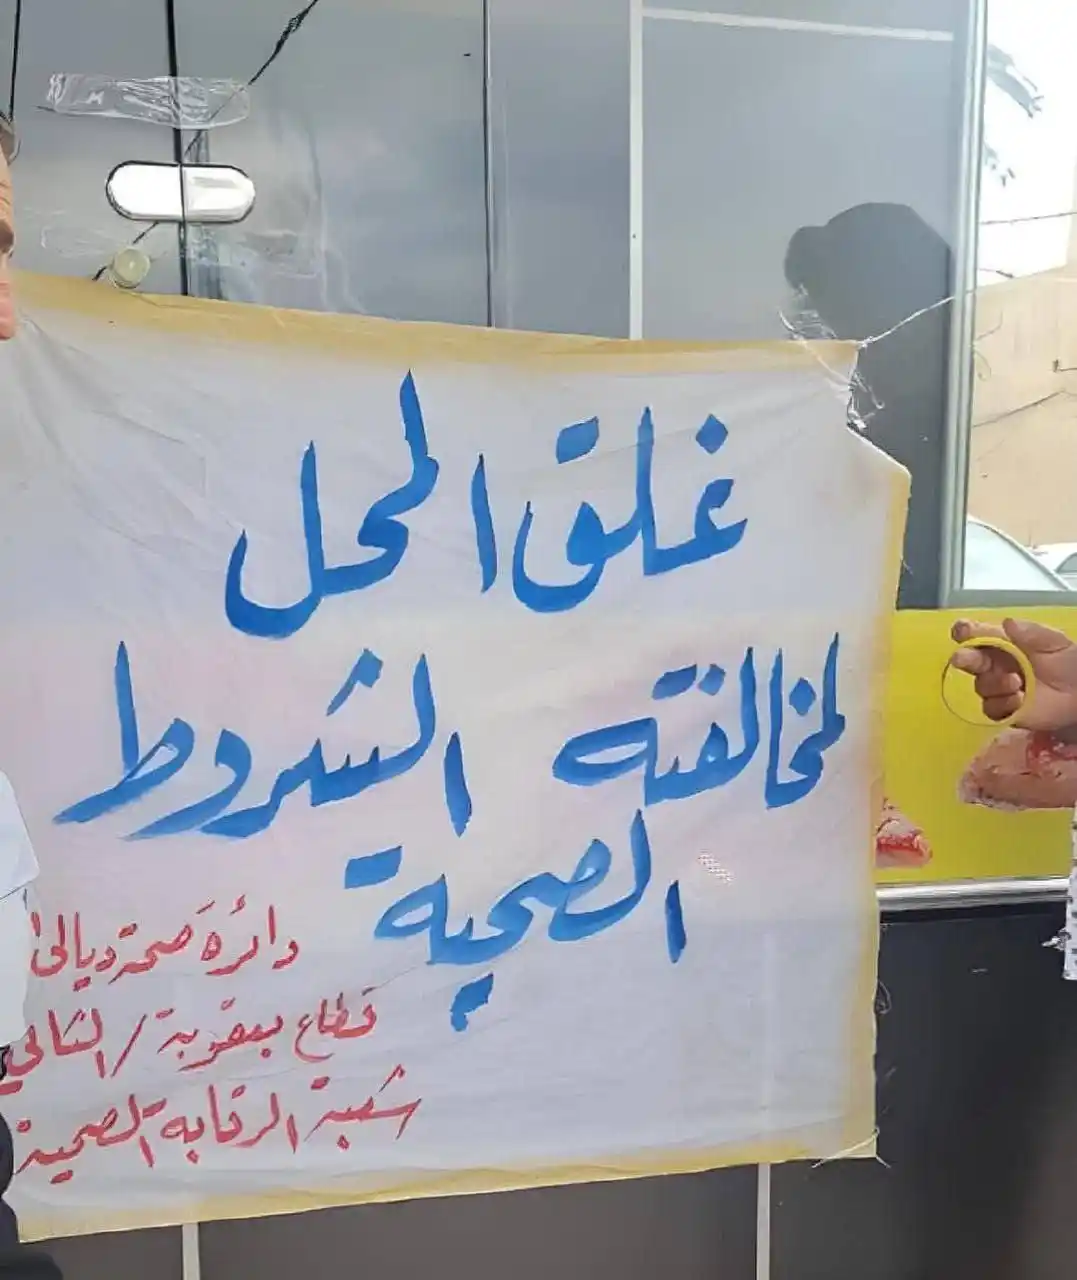 غلق المحل
لمخالفته الشروط
الصحية
دائرة صحة ديالى
قطاع بعقوبة / الثاني
شعبة الرقابة الصحية